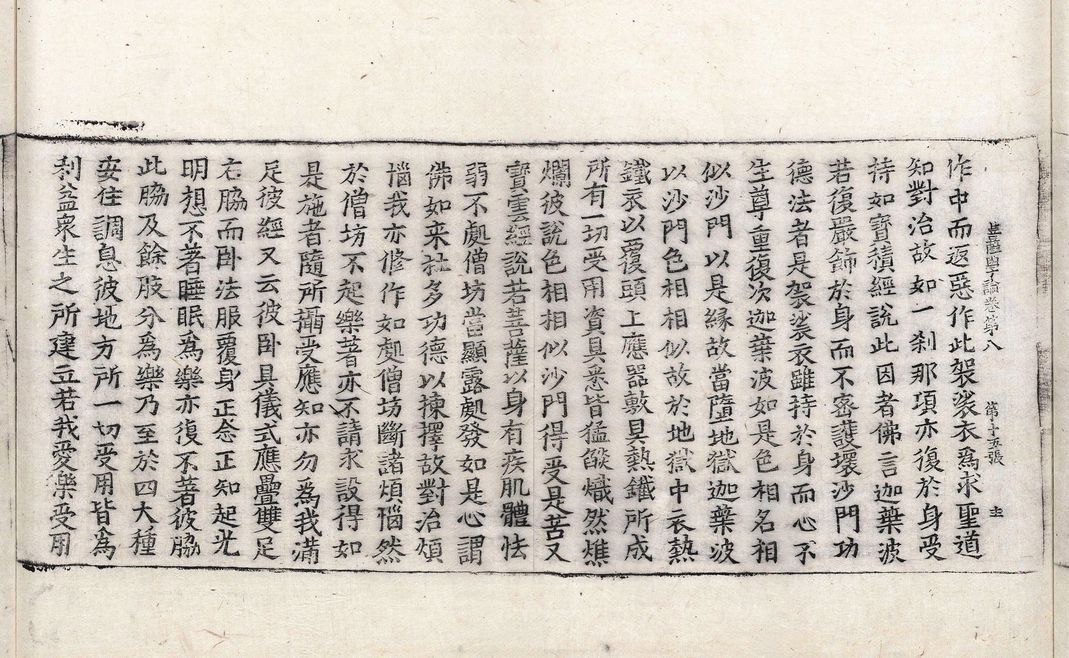 學論卷第八　第十五張
作中而返惡作此袈裟衣為求聖道
知對治故如一刹那項亦復於身受
持如寳積經說此因者佛言迦葉波
若復嚴飾於身而不密護壞沙門功
德法者是袈裟衣雖持於身而心不
生尊重復次迦葉波如是色相名相
似沙門以是緣故當墮地獄迦葉波
以沙門色相相似故於地獄中衣熱
鐵衣以覆頭上應器敷具熱鐵所成
所有一切受用資具悉皆猛燄熾然燋
爛彼說色相相似沙門得受是苦又
寳雲經說若菩薩以身有疾肌體怯
弱不處僧坊當顯露處發如是心謂
佛如来壮多功德以揀擇故對治煩
惱我亦修作如處僧坊斷諸煩惱然
於僧坊不起樂著亦不請求設得如
是施者隨所攝受應知亦勿為我滿
足彼經又云彼卧具儀式應疊雙足
右脇而卧法服覆身正念正知起光
明想不著睡眠為樂亦復不著彼脇
此脇及餘肢分為樂乃至於四大種
安住調息彼地方所一切受用皆為
利益衆生之所建立若我愛樂受用